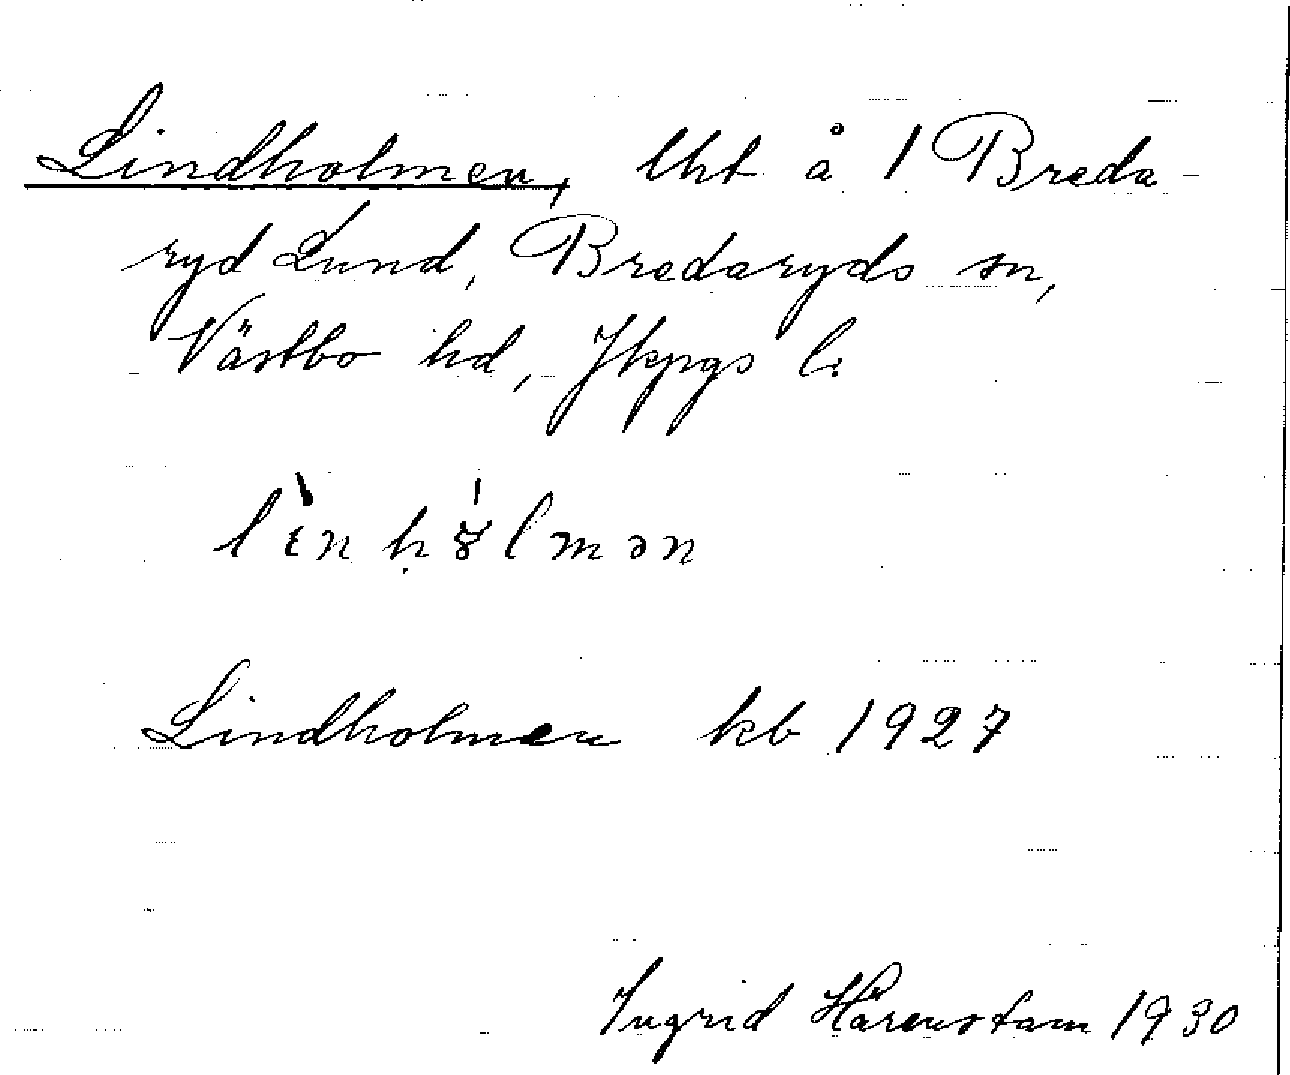 Lindholmen, lht å 1 Breda-
ryd Lund, Bredaryds sn,
Västbo hd, Jkpgs l.
Lindholmen kb 1927
Ingrid Hårenstam 1930